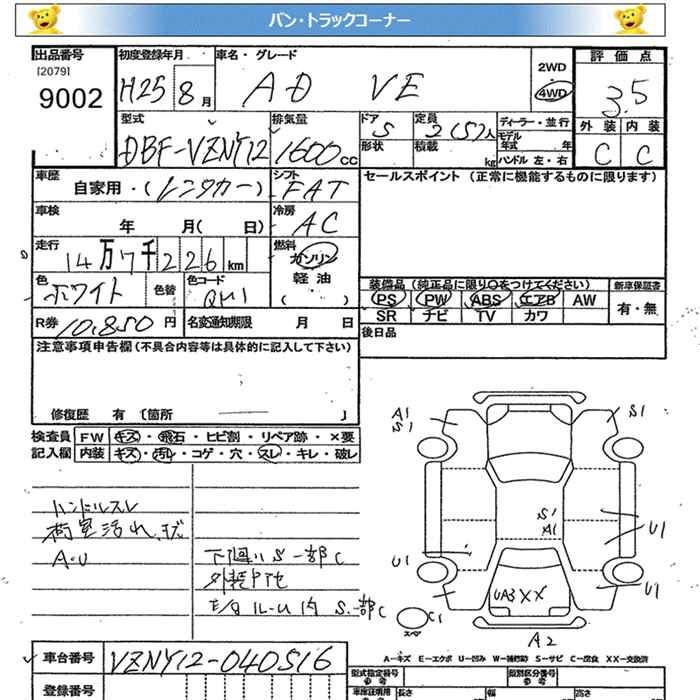 バン・トラックコーナー
出品番号
[2079]
9002
初度登録年月
H25 8月
車名・グレード
AD VE
2WD
4WD
評価点
3.5
外装 内装
C C
型式
DBF-VZNY12
排気量
1600cc
ドア
5
形状
定員
2(5)人
積載
kg
ディーラー・並行
モデル年式 年
ハンドル 左・右
車歴
自家用・(レンタカー)
シフト
FAT
車検
年 月( 日)
冷房
AC
走行
14万7千226km
燃料
ガソリン
軽油
( )
色
ホワイト
色替
色コード
QM1
R券
10,850円
名変通知期限 月 日
セールスポイント (正常に機能するものに限ります)
装備品 (純正品に限り○をつけてください)
新車保証書
PS PW ABS エアB AW
SR ナビ TV カワ
有・無
後日品
注意事項申告欄(不具合内容等は具体的に記入して下さい)
修復歴 有 〔箇所 〕
検査員
記入欄
FW キズ・飛石・ヒビ割・リペア跡・×要
内装 キズ・汚れ・コゲ・穴・スレ・キレ・破レ
ハンドルスレ
荷室汚れ、
A・U
下廻りS一部C
A1
S1
S1
S1
A1
U1
U1
U1
UA3XX
C1
スペア
A2
A-キズ E-エクボ U-凹み W-補修跡 S-サビ C-腐食 XX-交換済
車台番号
VZNY12-040516
登録番号
型式指定番号
参考
類別区分番号
参考
車庫証明用
参考
長さ
幅
高さ